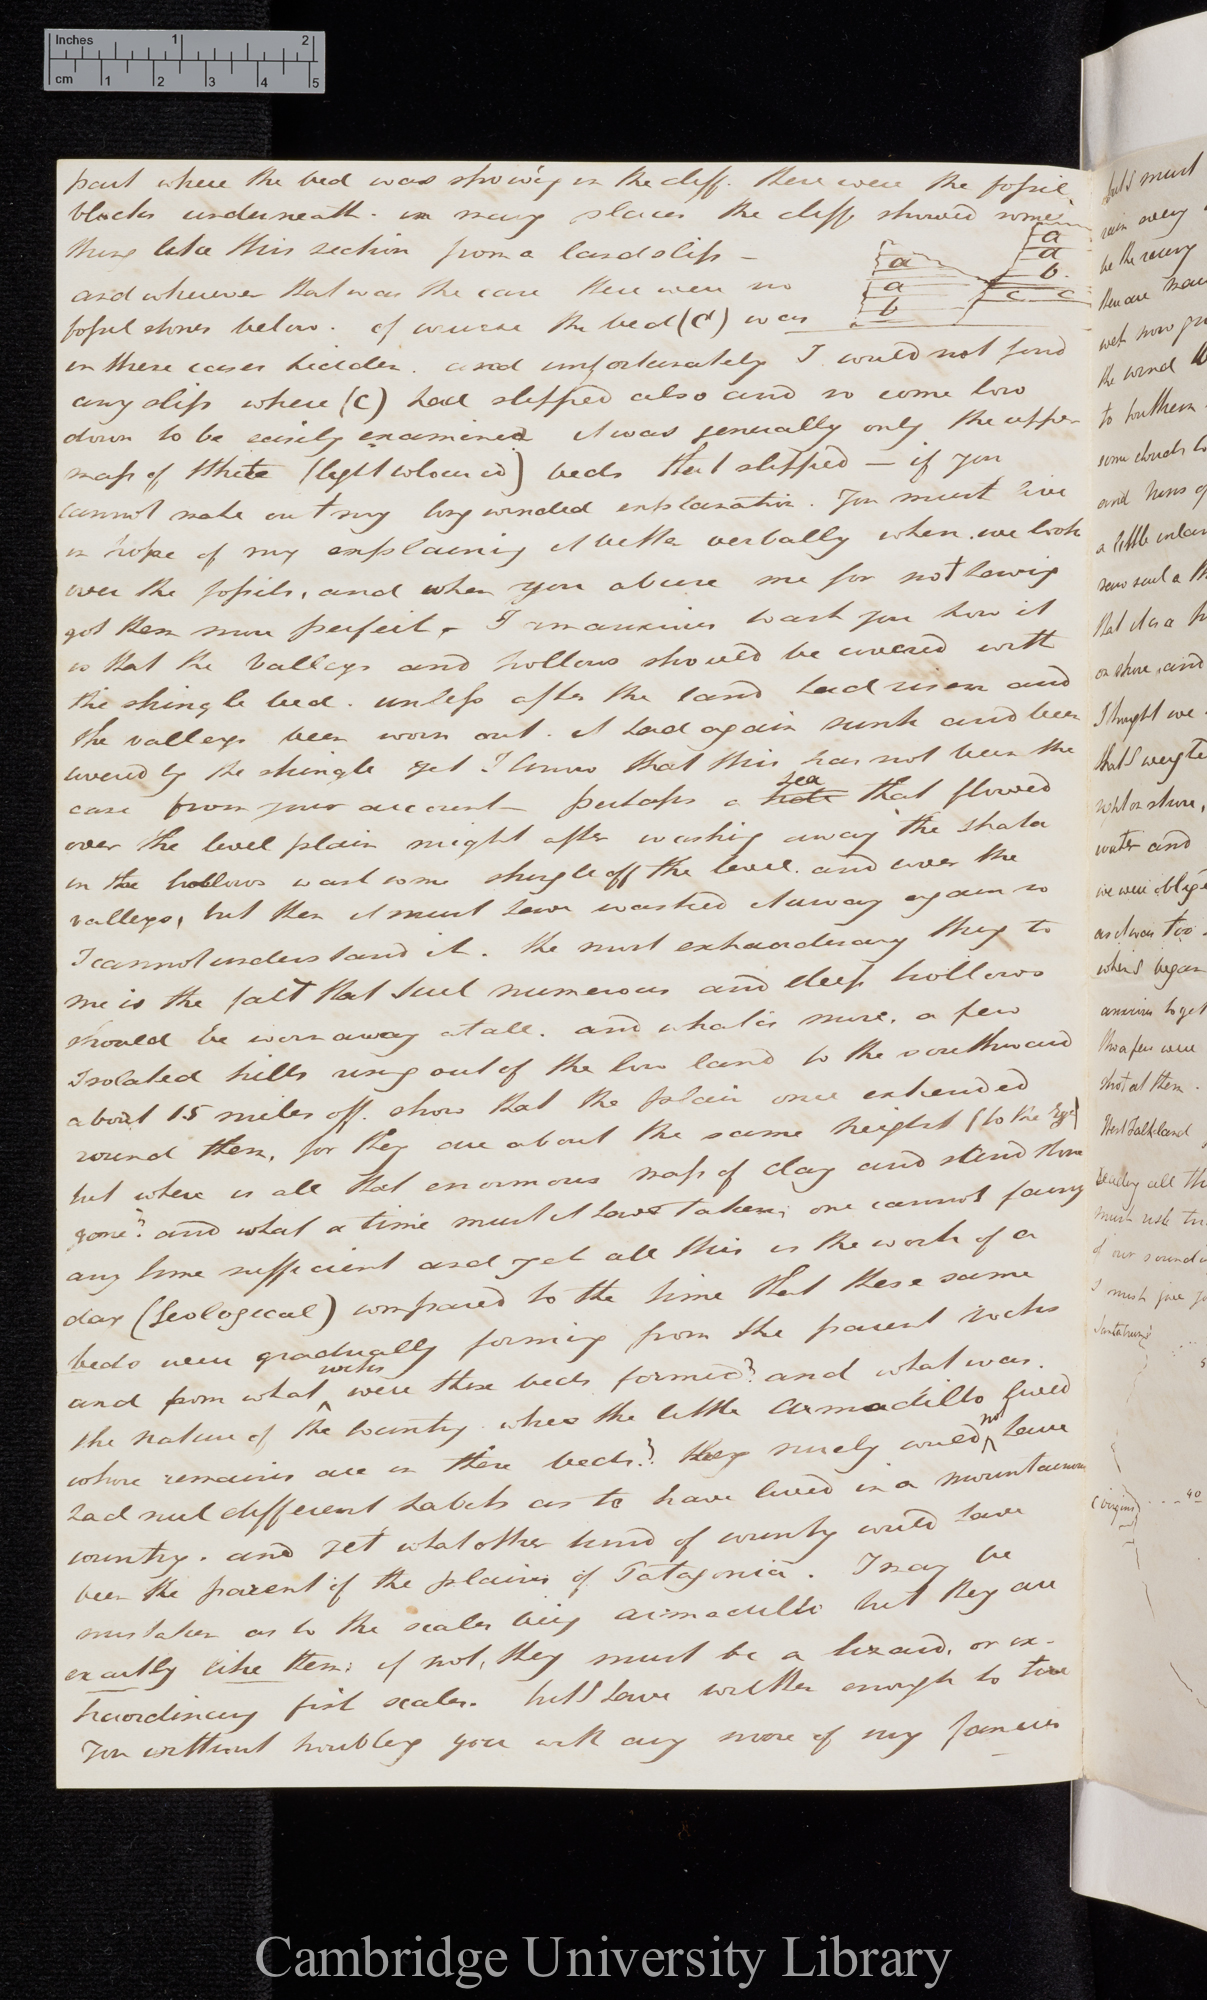 Inches 1 2
cm 1 2 3 4 5
part where the bed was showing in the cliff. there were the fossil
blocks underneath. in many places the cliff showed some
thing like this section from a landslip —
a a b a a b c c
and wherever that was the case there were no
fossil stones below. of course the bed (c) was
in these cases hidden. and unfortunately I could not find
any slip where (c) had slipped also and so come low
down to be easily examined it was generally only the upper
mass of white (light coloured) beds that slipped — if you
cannot make out my long winded explanation. You must live
in hope of my explaining it better verbally when we look
over the fossils, and when you abuse me for not having
got them more perfect. I am anxious to ask you how it
is that the valleys and hollows should be covered with
the shingle bed. unless after the land had risen and
the valleys been worn out. it had again sunk and been
covered by the shingle yet I know that this has not been the
case from your account — perhaps a sea that flowed
over the level plain might after washing away the strata
in the hollows wash some shingle off the level. and over the
valleys, but then it must have washed it away again so
I cannot understand it. the most extraordinary thing to
me is the fact that such numerous and deep hollows
should be worn away at all. and what is more, a few
Isolated hills rising out of the low land to the southward
about 15 miles off. show that the plain once extended
round them, for they are about the same height (to the Eye)
but where is all that enormous mass of clay and sand stone
gone? and what a time must it have taken; one cannot fancy
any time sufficient and yet all this is the work of a
day (Geological) compared to the time that these same
beds were gradually forming from the parent rocks
and from what rocks were these beds formed? and what was.
the nature of the country when the little Armadillo lived
whose remains are in these beds? they surely could not have
had such different habits as to have lived in a mountainous
country. and yet what other kind of country could have
been the parent of the plains of Patagonia. I may be
mistaken as to the scales being armadillo but they are
exactly like them; if not, they must be a lizard, or ex-
traordinary fish scales. but I have written enough to tire
You without troubling you with any more of my fancies
but I must
be the
they are
the wind
to
some clouds
and
a little
that it is a
on shore, and
I thought we
water and
we were oblige
as it was too
when I began
anxious to get
tho a few were
shot at them.
West Falkland
all th
must
of our
I must give yo
40
Cambridge University Library